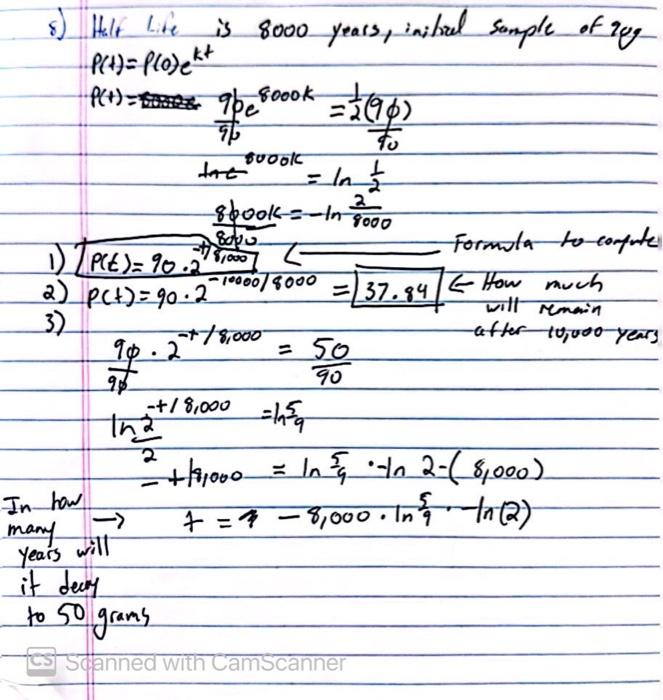 8) Half Life is 8000 years, initial sample of 90g
P(t)=P(0)e^kt
P(t)= 90e^8000k = 1/2(90)
90 90
ln e^8000k = ln 1/2
8000k = -ln 2
8000 8000
1) P(t)= 90·2^-t/8,000 ← Formula to compute
2) P(t)= 90·2^-10000/8000 = 37.84 ← How much will remain after 10,000 years
3)
90·2^-t/8,000 = 50
90 90
ln 2^-t/8,000 = ln 5/9
2
-t/8,000 = ln 5/9 ·-ln 2-(8,000)
In how many years will it decay to 50 grams → t = -8,000·ln 5/9 ·-ln(2)
CS Scanned with CamScanner